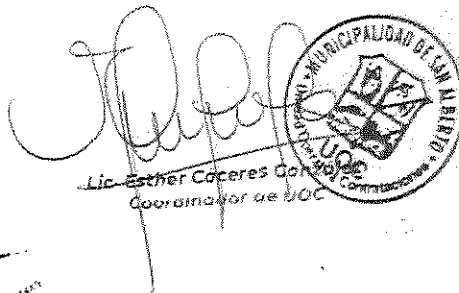 MUNICIPALIDAD DE SAN ALBERTO
UOC
Contrataciones
Lic. Esther Cáceres González
Coordinador de UOC